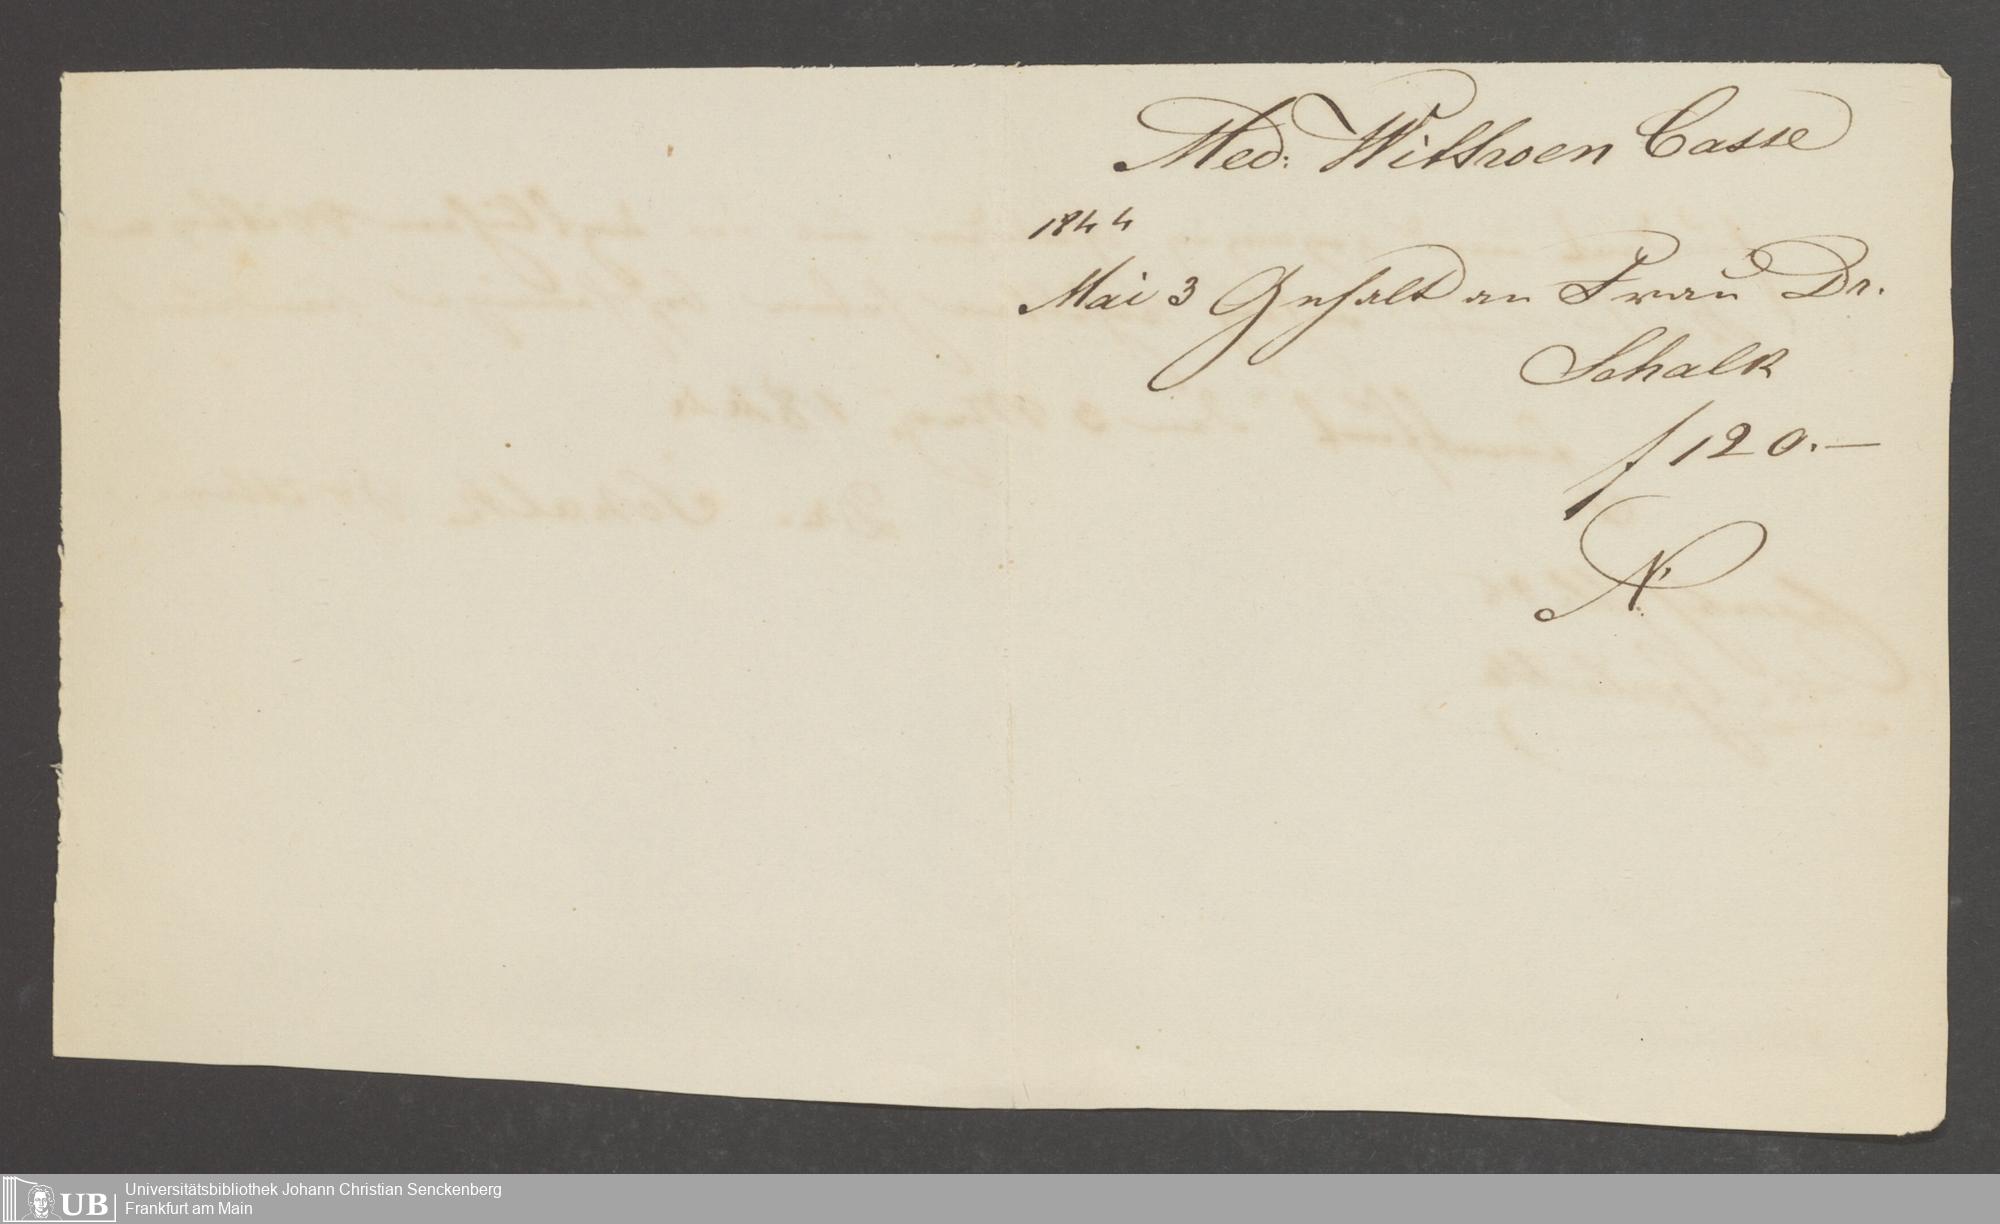 Med: Witthwen Casse
1844
Mai 3 Gehalt an Frau Dr.
Schalk
f 120.—
N.
UB Universitätsbibliothek Johann Christian Senckenberg
Frankfurt am Main